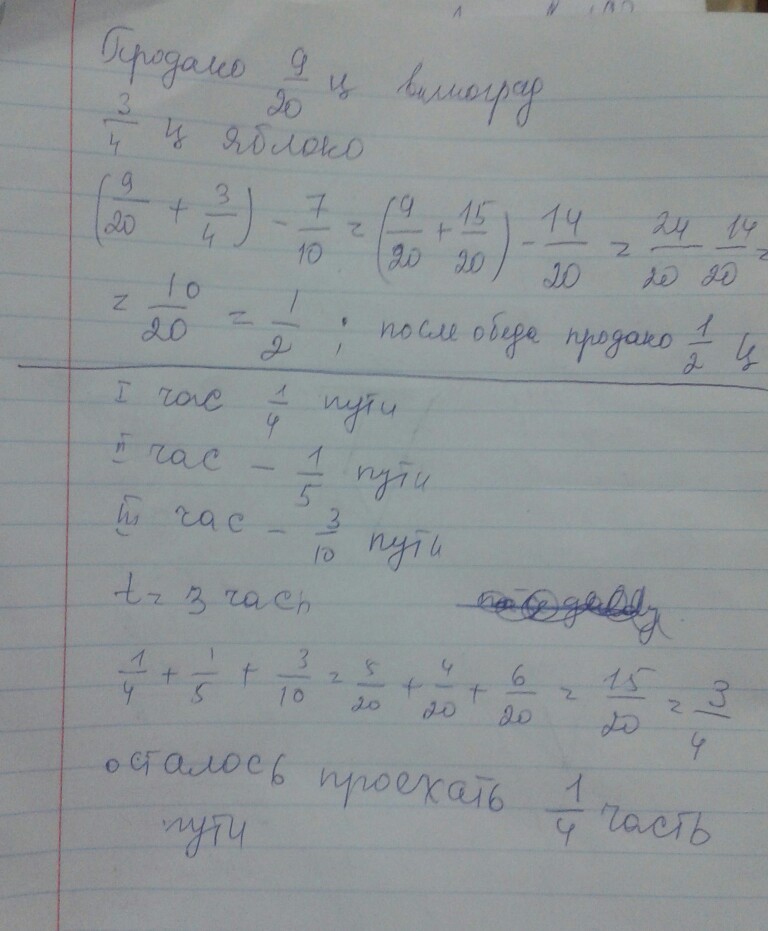 Продано 9/20 ц виноград
3/4 ц яблоко
(9/20 + 3/4) - 7/10 = (9/20 + 15/20) - 14/20 = 24/20 14/20 =
= 10/20 = 1/2 ; после обеда продано 1/2 ц
I час 1/4 пути
II час - 1/5 пути
III час - 3/10 пути
t = 3 часы
1/4 + 1/5 + 3/10 = 5/20 + 4/20 + 6/20 = 15/20 = 3/4
осталось проехать 1/4 часть
пути